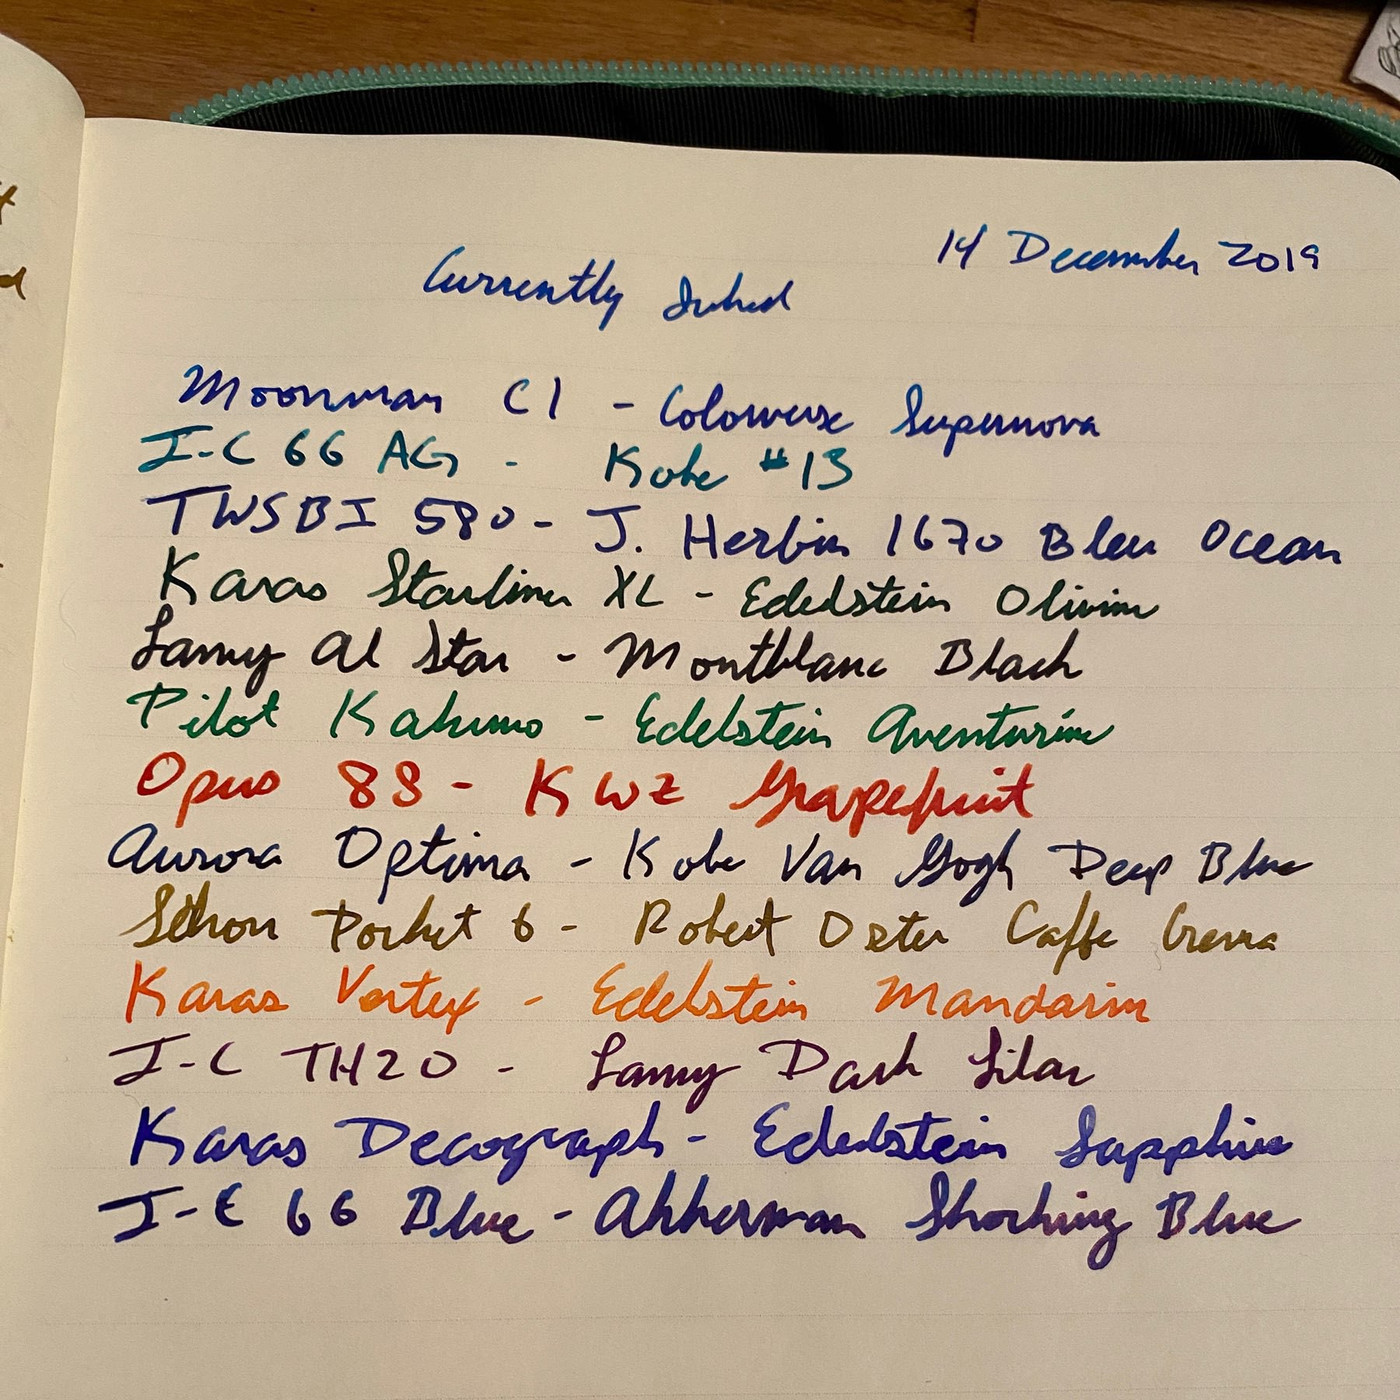 14 December 2019
Currently Inked
Moonman C1 - Colorverse Supernova
J-C 66 AG - Kobe #13
TWSBI 580 - J. Herbin 1670 Bleu Ocean
Karas Starliner XL - Edelstein Olivine
Lamy Al Star - Montblanc Black
Pilot Kakuno - Edelstein Aventurine
Opus 88 - KWZ Grapefruit
Aurora Optima - Kobe Van Gogh Deep Blue
Schon Pocket 6 - Robert Oster Caffe Crema
Karas Vertex - Edelstein Mandarin
J-C TH20 - Lamy Dark Lilac
Karas Decograph - Edelstein Sapphire
J-C 66 Blue - Akkerman Shocking Blue